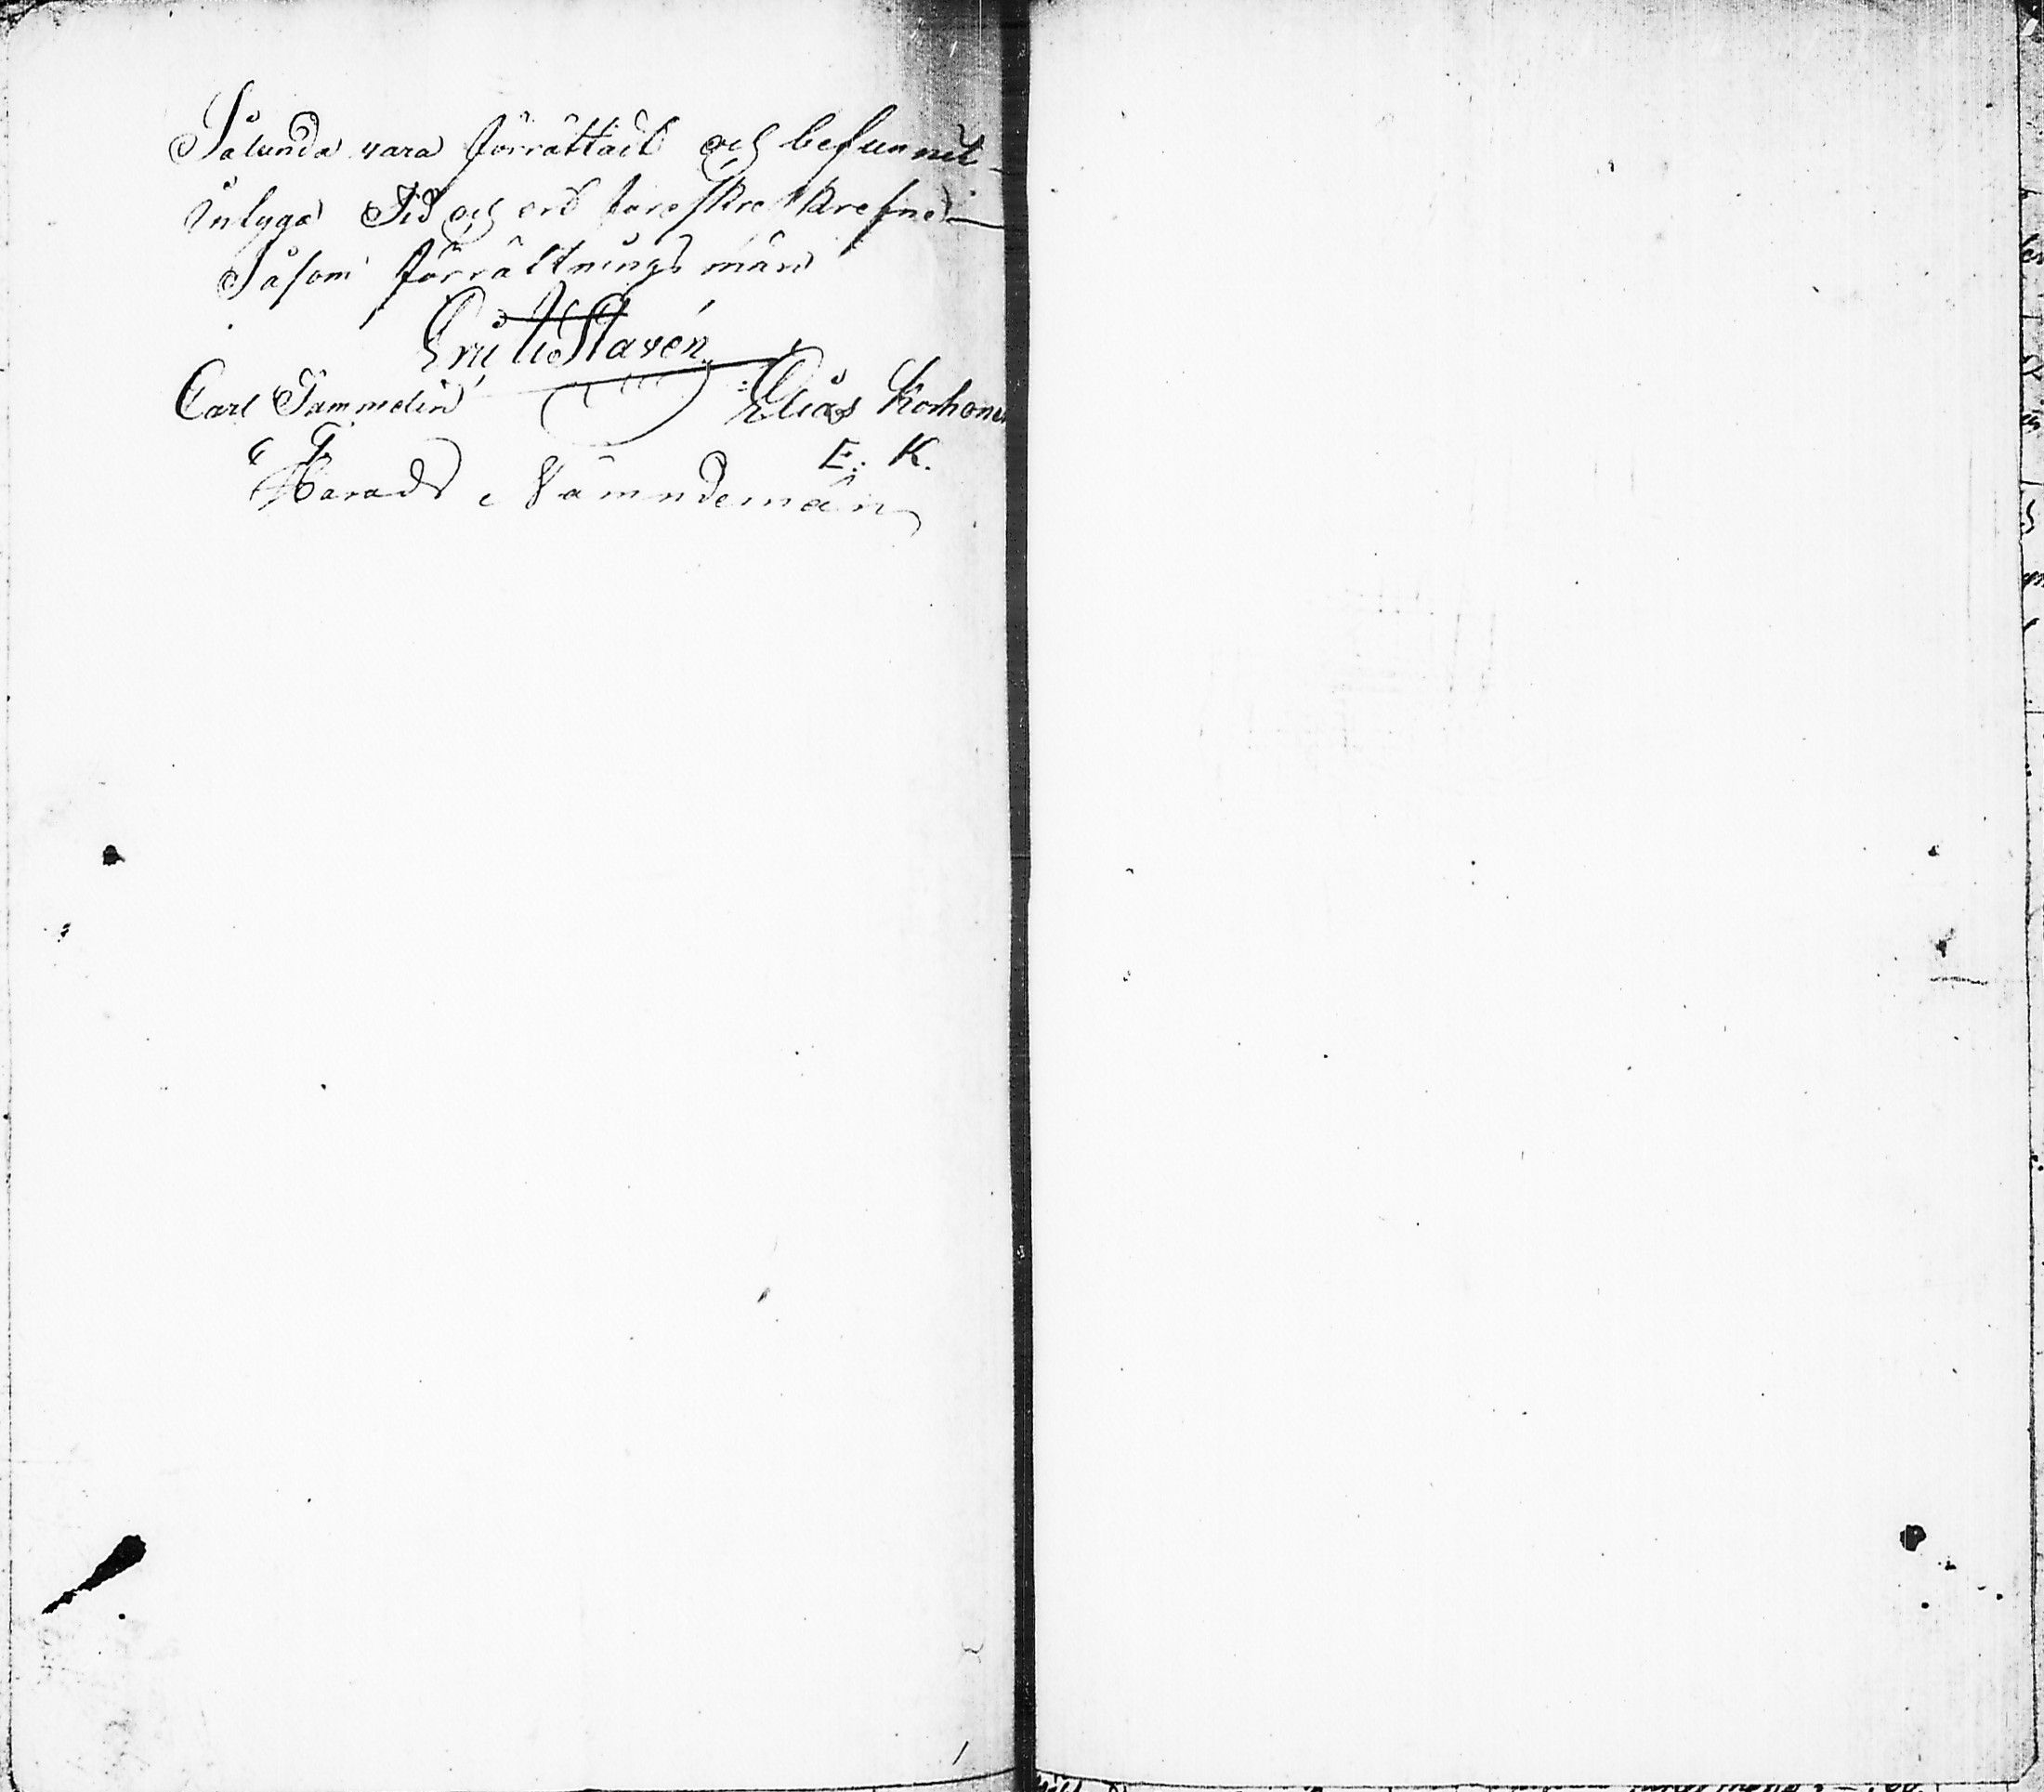 Sålunda vara förrättadt och befunnit
inlyga Tid och ord föreskreskrefne
Såsom förrättnings män
Stavén
Carl Sammelin Elias Korhonen
C E. K.
Härads Nämndemän